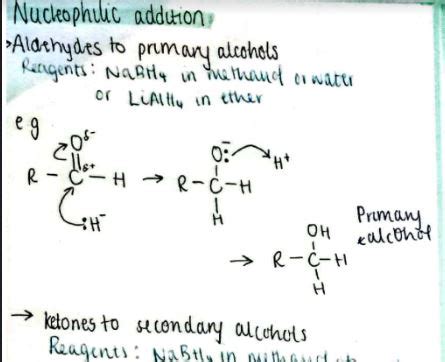 Nucleophilic addition:
>Aldehydes to primary alcohols
Reagents: NaBH4 in methanol or water
or LiAlH4 in ether
eg
Oδ-
R - Cδ+ - H → R-C-H
:H⁻
O:⁻
H+
H
Primary
alcohol
OH
→ R-C-H
H
→ ketones to secondary alcohols
Reagents: NaBH4 in methanol or